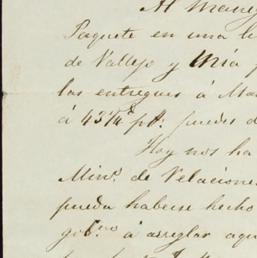 Al
Paquete en una
de Vallejo y Mia
las entregues á
á 43¼ pº/. puedes
Hoy nos ha
Minº. de Relacione
pueda haberse hecho
gobno á arreglar aqu